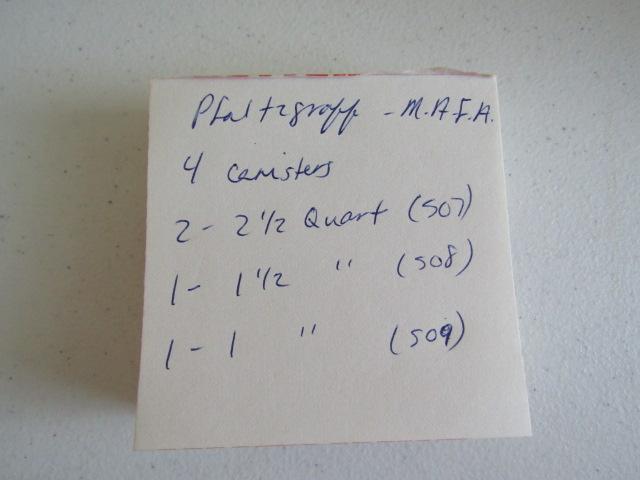 Pfaltzgraff - M.A.F.A.
4 canisters
2 - 2 1/2 Quart (507)
1 - 1 1/2 " (508)
1 - 1 " (509)